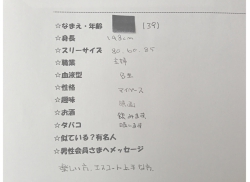 ☆なまえ・年齢 (39)
☆身長
☆スリーサイズ 80.60.85
☆職業 主婦
☆血液型 B型
☆性格 マイペース
☆趣味 映画
☆お酒 飲みます
☆タバコ 吸います
☆似ている?有名人
☆男性会員さまへメッセージ
楽しい方、エスコート上手な方